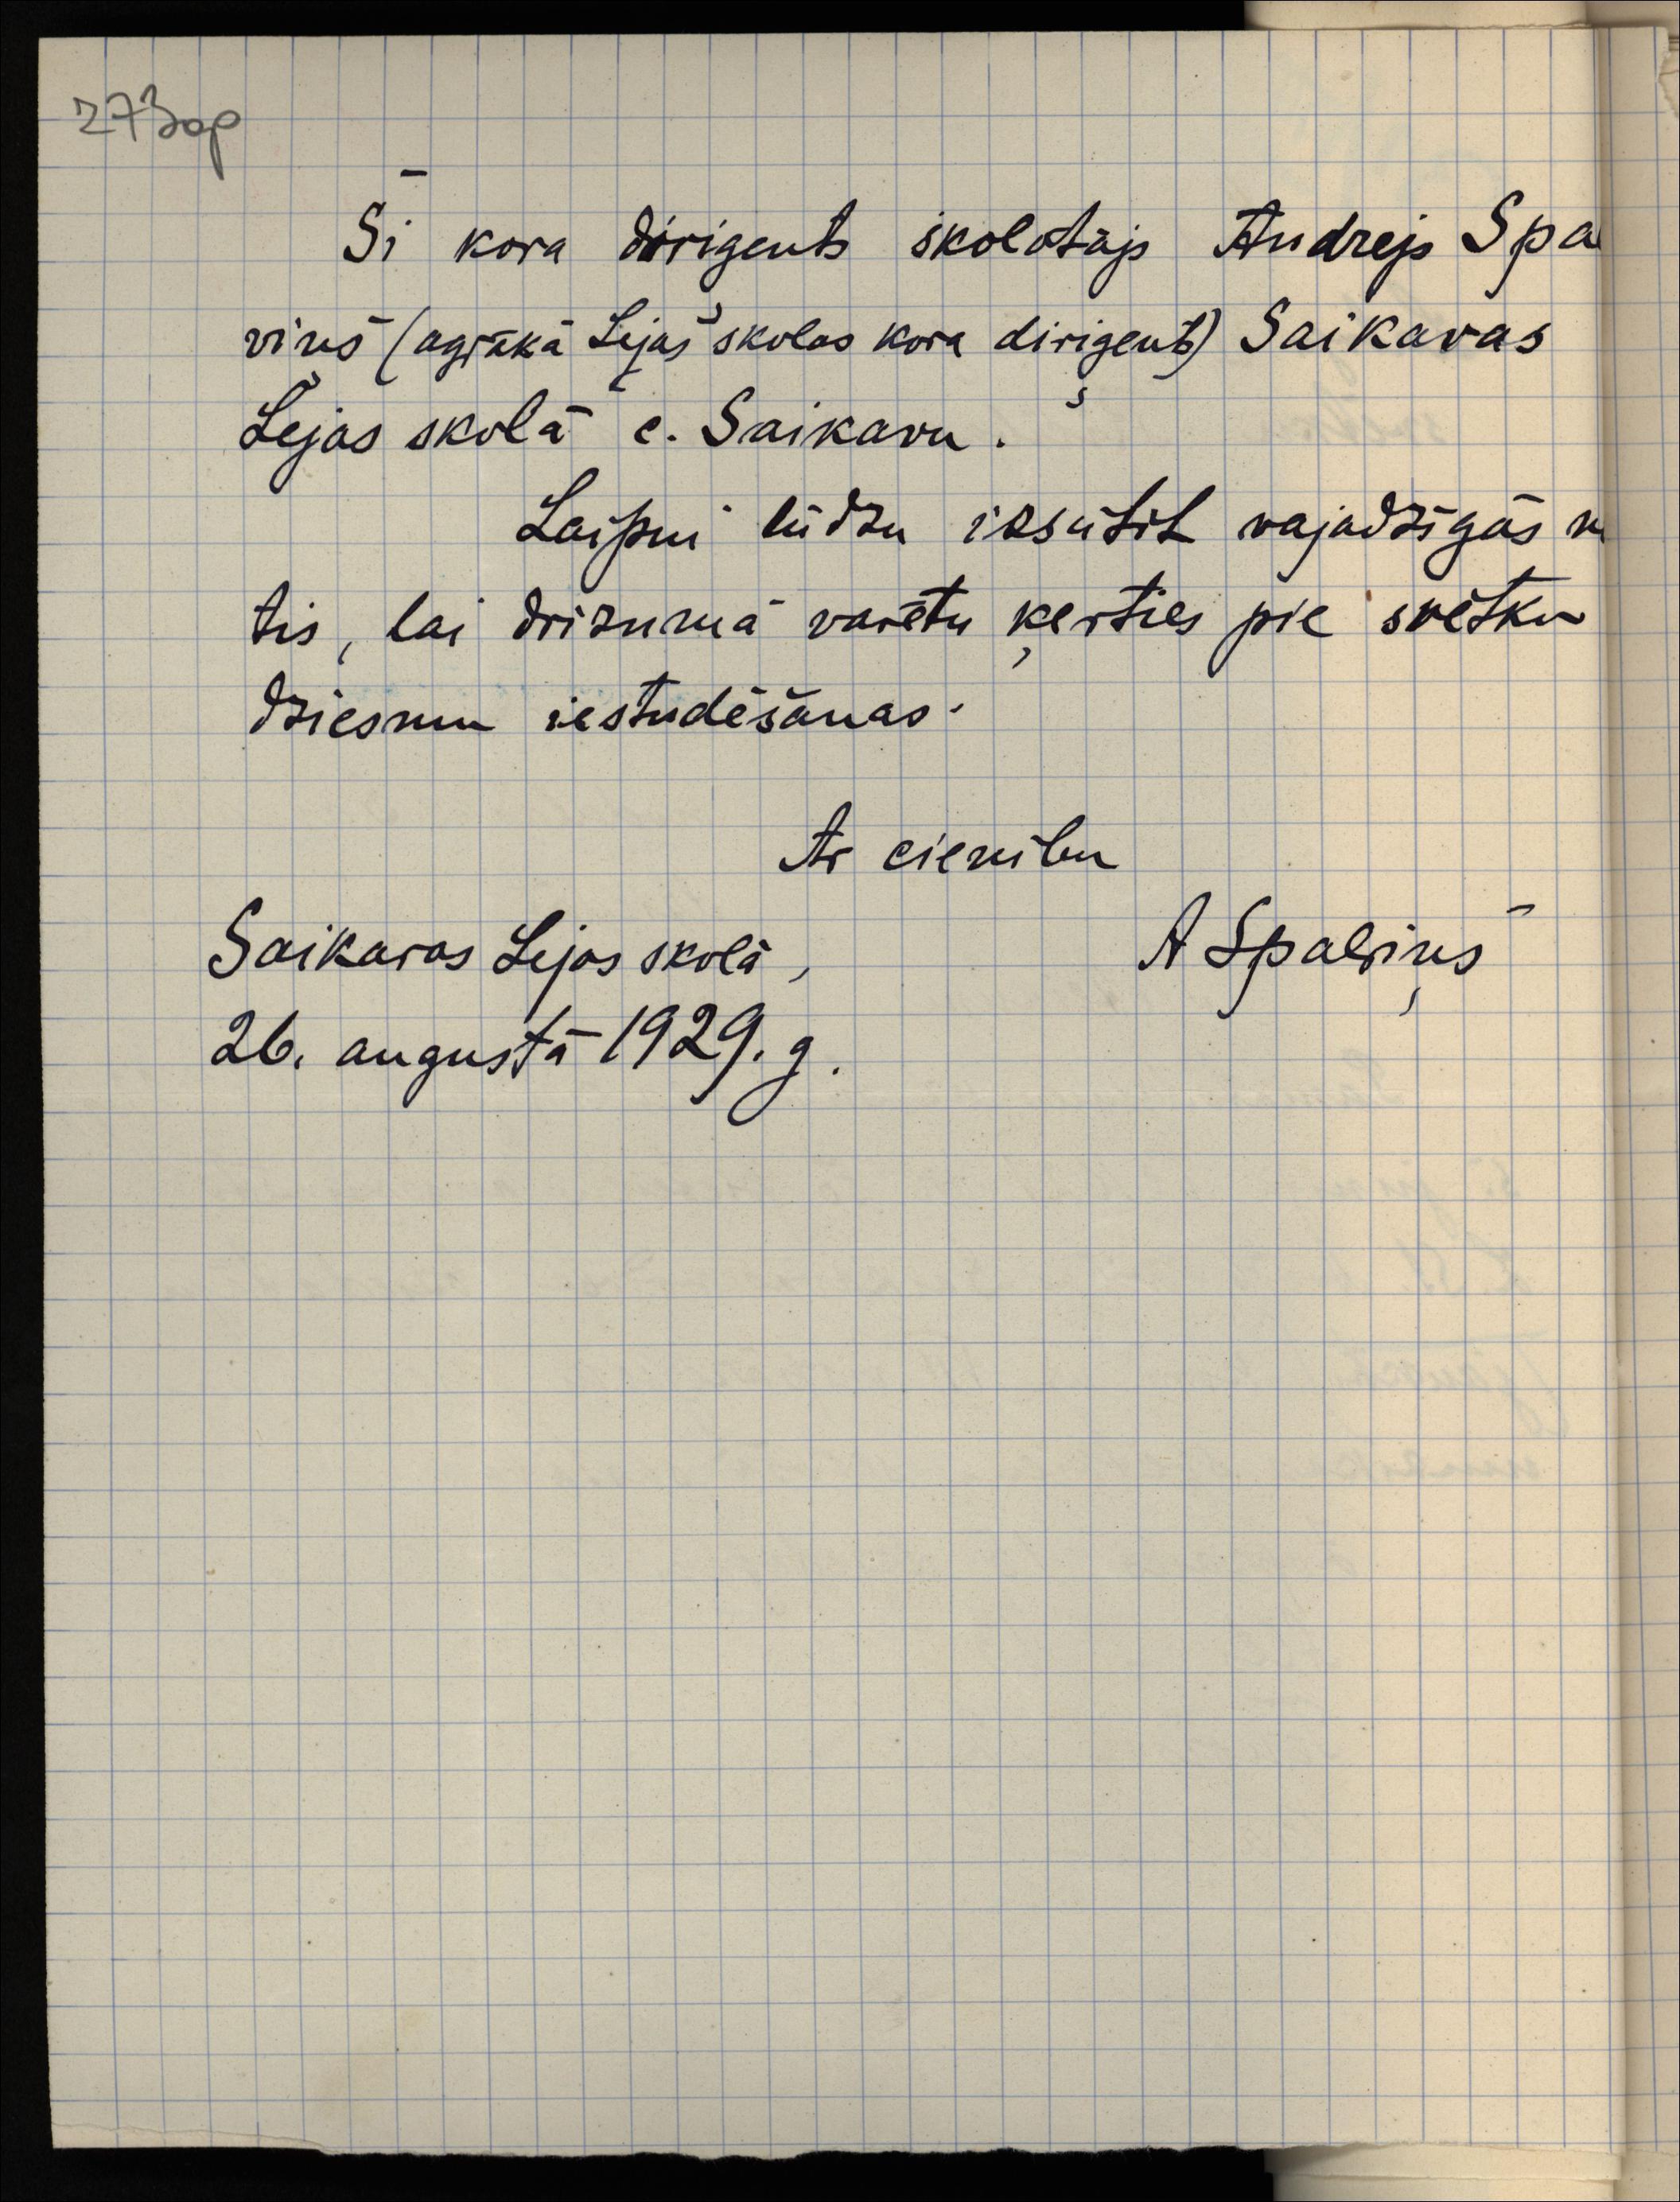 273op
Ši kora dirigents skolotājs Andrejs Spa
viņš (agrākā Lejas skolas kora dirigents) Saikavas
Lejas skolā c. Saikavu.
Laipni lūdzu izsūtīt vajadzīgās
tis, lai drīzumā varētu ķerties pie svētku
dziesmu iestudēšanas.
Ar cienību
Saikavas Lejas skolā, A Spaliņš
26. augustā 1929. g.